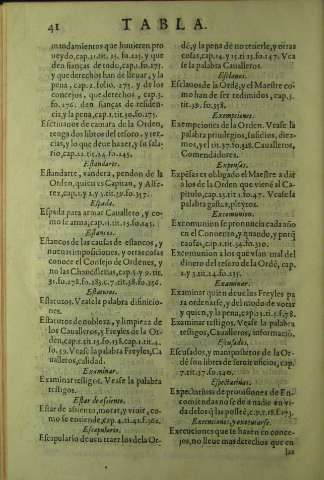 41 TABLA.
mandamientos que huuieren pro
ueydo, cap.11.tit.15. fo.125. y que
den fianças de todo, cap.1.fo.275.
y que derechos han de lleuar, y la
pena, cap.2.folio, 275. y de los
concejos, que derechos, cap.3.
fo.276. den fianças de residen-
cia, y la pena, cap.1.tit.50.fo.275.
Escriuanos de camara de la Orden,
tenga dos libros del tesoro, y ter-
cias, y lo que deue hazer, y su sala-
rio, cap.22.tit.14. fo.145.
Estandarte.
Estandarte, vandera, pendon de la
Orden, quien es Capitan, y Alfe-
rez, cap.1.y 2.y 3.tit.59.fo.357.
Espada.
Espada para armar Cauallero, y co-
mo se arma, cap.11.tit.15.fo.145.
Estancos.
Estancos de las causas de estancos, y
nueuas imposiciones, y otras cosas
conoce el Consejo de Ordenes, y
no las Chancillerias, cap.5.y 9. tit.
31.fo.278.fo.283.c.7.tit.38.fo.356.
Estatutos.
Estatutos. Vease la palabra difinicio-
nes.
Estatutos de nobleza, y limpieza de
los Caualleros, y Freyles de la Or-
den, cap.1.tit.15.fo.138.cap.1.tit.4.
fo.59. Vease la palabra Freyles, Ca
ualleros, calidad.
Examinar.
Examinar testigos. Vease la palabra
testigos.
Estar de assiento.
Estar de assiento, morar, y viuir, co-
mo se entiende, cap.4.tit.41.f.302.
Escapulario.
Escapulario de us an traer los de la Or-
dē, y la pena de no traerle, y otras
cosas, cap.14. y 15.ti 13.fo.147. Vea
se la palabra Caualleros.
Esclauos.
Esclauos de la Ordē, y el Maestre co-
mo han de ser redimidos, cap.3.
tit.39. fo.358.
Exempciones.
Exempciones de la Orden. Vease la
palabra priuilegios, subsidios, diez-
mos, y el tit.37.fo.328. Caualleros,
Comendadores.
Expensas.
Expēsas es obligado el Maestre a dar
a los de la Orden que vienē al Ca-
pitulo, cap.15.tit.1.fo.47. Vease la
palabra gastos, pleytos.
Excomunion.
Excomunion se pronuncie cada año
en el Conuento, y quando, y porq̄
causas, cap.1.tit.54.fo.310.
Excomunion a los que vsan mal del
dinero del tesoro de la Ordē, cap.
2.y 3.tit.24.fo.135.
Examinar.
Examinar quien deue los Freyles pa
ra ordenarse, y del modo de votar
y quien, y la pena, cap.11.tit.5.f.578.
Examinar testigos. Vease la palabra
testigos, Caualleros, informació.
Escusados.
Escusados, y mamposteros de la Or-
dē son libres de seruir oficios, cap.
7.tit.37.fo.340.
Expectatiuas.
Expectatiuas de prouisiones de En-
comiendas no se dē a nadie en vi-
da de los q̄ las posseē, c.9.t.18.f.173.
Execuciones, y executarse.
Execuciones que se hazen de conce-
jos, no lleue mas derechos que en
las